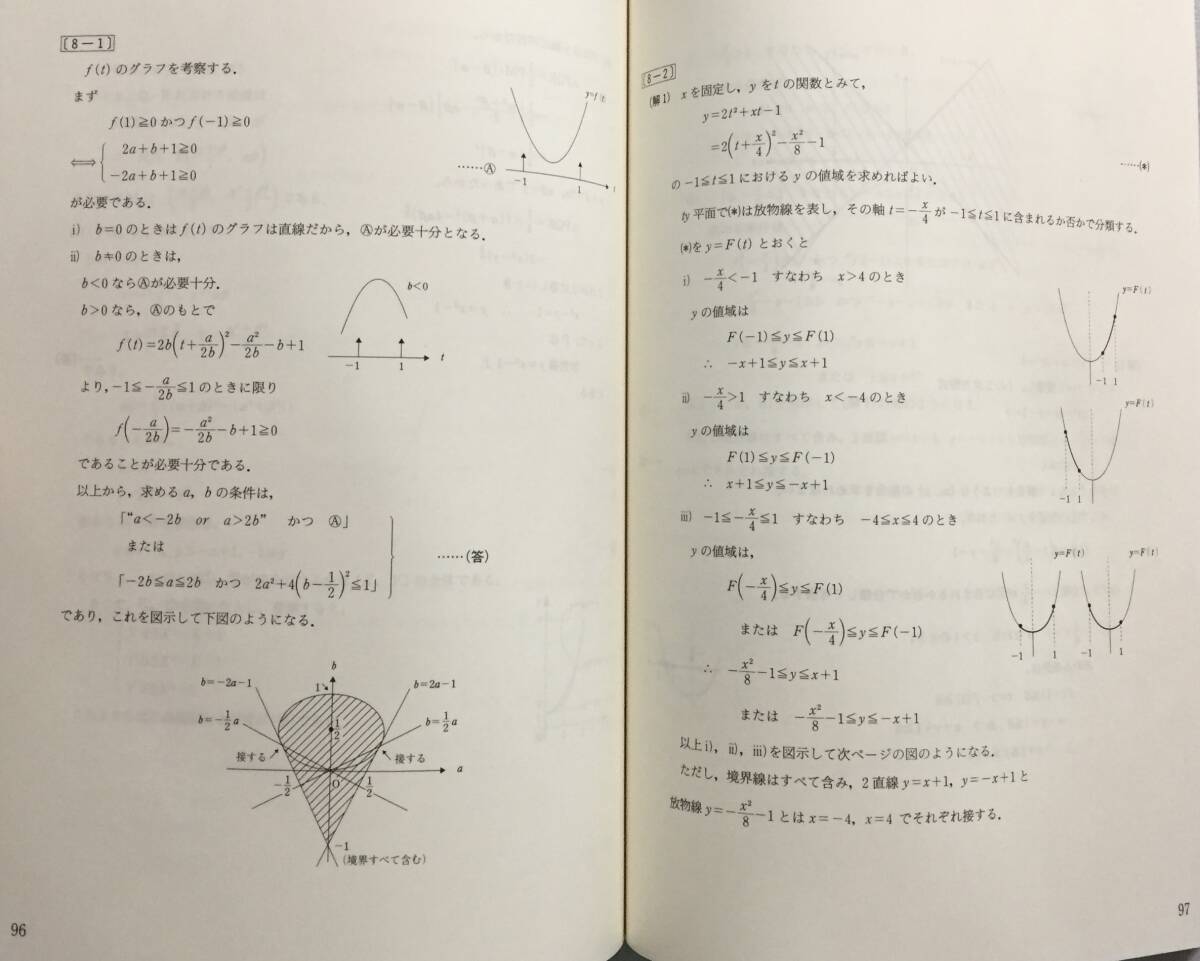 [8-1]
f(t) のグラフを考察する.
まず
f(1)≧0 かつ f(-1)≧0
⟺ { 2a+b+1≧0
-2a+b+1≧0
……Ⓐ
y=f(t)
-1 1 t
が必要である.
i) b=0 のときは f(t) のグラフは直線だから, Ⓐが必要十分となる.
ii) b≠0 のときは,
b<0 ならⒶが必要十分.
b>0 なら, Ⓐのもとで
f(t)=2b(t+a/2b)²-a²/2b-b+1
b<0
-1 1 t
より, -1≦-a/2b≦1 のときに限り
f(-a/2b)=-a²/2b-b+1≧0
であることが必要十分である.
以上から, 求める a, b の条件は,
「"a<-2b or a>2b" かつ Ⓐ」
または
「-2b≦a≦2b かつ 2a²+4(b-1/2)²≦1」
……(答)
であり, これを図示して下図のようになる.
b
b=-2a-1
1
b=2a-1
b=-1/2 a
1/2
b=1/2 a
接する
接する
a
-1/2
O
1/2
-1
(境界すべて含む)
96
[8-2]
(解1) x を固定し, y を t の関数とみて,
y=2t²+xt-1
=2(t+x/4)²-x²/8-1
……(*)
の -1≦t≦1 における y の値域を求めればよい.
ty 平面で(*)は放物線を表し, その軸 t=-x/4 が -1≦t≦1 に含まれるか否かで分類する.
(*)を y=F(t) とおくと
i) -x/4<-1 すなわち x>4 のとき
y の値域は
F(-1)≦y≦F(1)
∴ -x+1≦y≦x+1
y=F(t)
-1 1
ii) -x/4>1 すなわち x<-4 のとき
y の値域は
F(1)≦y≦F(-1)
∴ x+1≦y≦-x+1
y=F(t)
-1 1
iii) -1≦-x/4≦1 すなわち -4≦x≦4 のとき
y の値域は,
F(-x/4)≦y≦F(1)
または F(-x/4)≦y≦F(-1)
∴ -x²/8-1≦y≦x+1
または -x²/8-1≦y≦-x+1
y=F(t) y=F(t)
-1 1 -1 1
以上 i), ii), iii)を図示して次ページの図のようになる.
ただし, 境界線はすべて含み, 2直線 y=x+1, y=-x+1 と
放物線 y=-x²/8-1 とは x=-4, x=4 でそれぞれ接する.
97